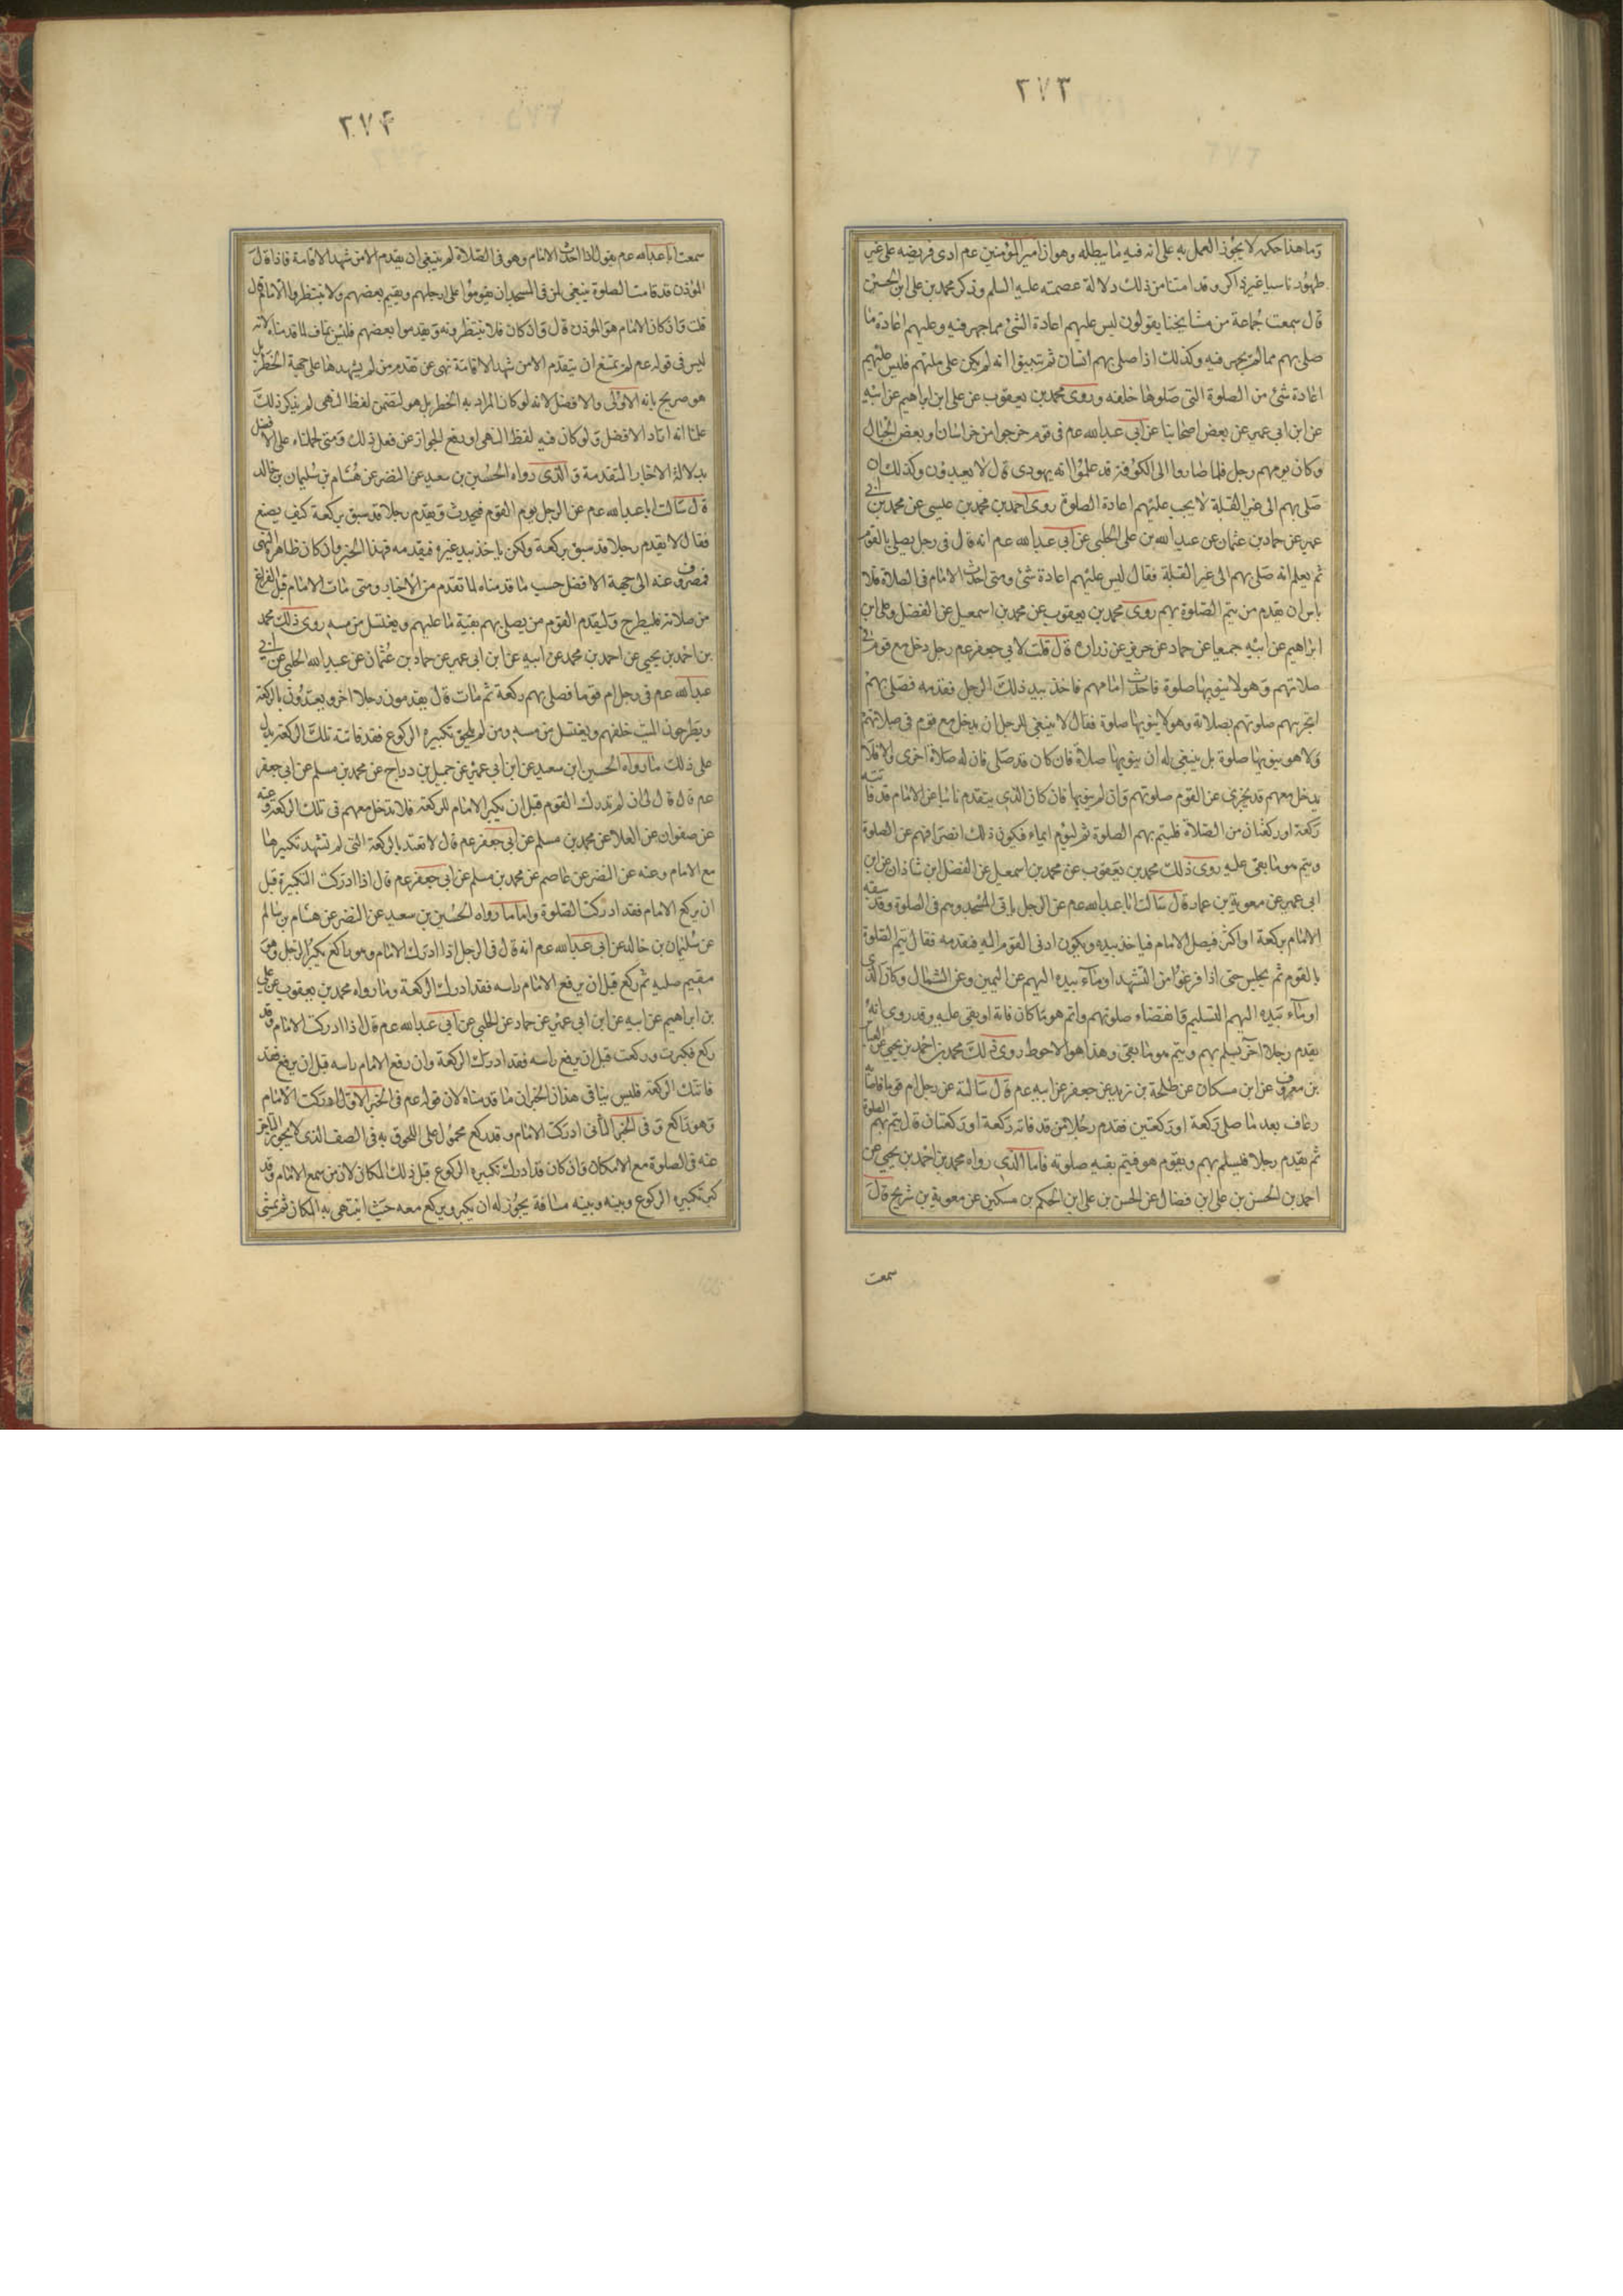 ٢٧٣
وما هذا حكمه لا يجوز العمل به على انه فيه ما يبطله وهو ان امير المؤمنين عم ادى فريضه على غير
طهور ناسيا غير ذاكر وقد امتنا من ذلك دلالة عصمته عليه السلم وذكر محمد بن على ابن الحسين
قال سمعت جماعة من مشايخنا يقولون ليس عليهم اعادة الشئ مما جهر فيه وعليهم اعادة ما
صلى بهم مما لم يجهر فيه وكذلك اذا صلى بهم انسان ثم تبيوا انه لم يكن على ملتهم فليس عليهم
اعادة شئ من الصلوة التى صلوها خلفه وروى محمد بن يعقوب عن على ابن ابراهيم عن ابيه
عن ابن ابى عمير عن بعض اصحابنا عن ابى عبدالله عم فى قوم خرجوا من خراسان او بعض الجبال
وكان يؤمهم رجل فلما صاروا الى الكوفة قد علموا انه يهودى قال لا يعيدون وكذلك ان
صلى بهم الى غير القبلة لا يجب عليهم اعادة الصلوة روى احمد بن محمد بن عيسى عن محمد بن ابى
عمير عن حماد بن عثمان عن عبدالله بن على الحلبى عن ابى عبدالله عم انه قال فى رجل يصلى بالقوم
ثم يعلم انه صلى بهم الى غير القبلة فقال ليس عليهم اعادة شئ ومتى احدث الامام فى الصلاة فلا
باس ان يقدم من يتم الصلوة بهم روى محمد بن يعقوب عن محمد بن اسمعيل عن الفضل وعلى ابن
ابراهيم عن ابيه جميعا عن حماد عن حريز عن زرارة قال قلت لابى جعفر عم رجل دخل مع قوم فى
صلاتهم وهو لا ينويها صلوة فاحدث امامهم فاخذ بيد ذلك الرجل فقدمه فصلى بهم
اتجزيهم صلوتهم بصلاته وهو لا ينويها صلوة فقال لا ينبغى للرجل ان يدخل مع قوم فى صلاتهم
ولا هو ينويها صلوة بل ينبغى له ان ينويها صلاة فان كان قد صلى فان له صلاة اخرى والا فلا
يدخل معهم قد يجزى عن القوم صلوتهم وان لم ينوها فان كان الذى يتقدم نائبا عن الامام قد فاتته
ركعة او ركعتان من الصلاة فليتم بهم الصلوة ثم ليوم ايماء فيكون ذلك انصرافهم عن الصلوة
ويتم هو ما بقى عليه روى ذلك محمد بن يعقوب عن محمد بن اسمعيل عن الفضل ابن شاذان عن ابن
ابى عمير عن معوية بن عمار قال سالت ابا عبدالله عم عن الرجل ياتى المسجد وهم فى الصلوة وقد سبقه
الامام بركعة او اكثر فيصل الامام فياخذ بيده ويكون ادنى القوم اليه فيقدمه فقال يتم الصلوة
بالقوم ثم يجلس حتى اذا فرغوا من التشهد اوماء بيده اليهم عن اليمين وعن الشمال وكان الذى
اوماء بيده اليهم التسليم وانقضاء صلوتهم واتم هو ما كان فاته او بقى عليه وقد روى انه
يقدم رجلا اخر يسلم بهم ويتم هو ما بقى وهذا هو الاحوط روى ذلك محمد بن احمد بن يحيى عن العباس
بن معروف عن ابن مسكان عن طلحة بن زيد عن جعفر عن ابيه عم قال سالته عن رجل ام قوما فاصابه
رعاف بعد ما صلى ركعة او ركعتين فقدم رجلا من قد فاته ركعة او ركعتان قال يتم بهم الصلوة
ثم يقدم رجلا فليسلم بهم ويقوم هو فيتم بقيه صلوته فاما الذى رواه محمد بن احمد بن يحيى عن
احمد بن الحسن بن على ابن فضال عن الحسن بن على ابن الحكم بن مسكين عن معوية بن شريح قال
سمعت
٢٧۴
سمعت ابا عبدالله عم يقول اذا احدث الامام وهو فى الصلاة لم ينبغى ان يقدم الا من شهد الاقامة فاذا قال
المؤذن قد قامت الصلوة ينبغى لمن فى المسجد ان يقوموا على ارجلهم ويقيم بعضهم ولا ينتظروا الامام قال
قلت وان كان الامام هو المؤذن قال وان كان فلا ينتظرونه ويقدموا بعضهم فليس بمناف لما قدمناه لانه
ليس فى قوله عم لم يمتنع ان يتقدم الا من شهد الاقامة نهى عن تقدم من لم يشهدها على جهة الحظر بل
هو صريح بانه الاولى والافضل لانه لو كان المراد به الحظر بل هو لتضمن لفظ النهى لم يذكر ذلك
علمنا انه اراد الافضل ولو كان فيه لفظ النهى او رفع الجواز عن فعل ذلك ومتى حملناه على الافضل
بدلالة الاخبار المتقدمة والذى رواه الحسين بن سعيد عن النضر عن هشام بن سليمان بن خالد
قال سالت ابا عبدالله عم عن الرجل يؤم القوم فيحدث ويقدم رجلا قد سبق بركعة كيف يصنع
فقال لا يقدم رجلا قد سبق بركعة ولكن ياخذ بيد غيره فيقدمه فهذا الخبر وان كان ظاهر النهى
فمصروف عنه الى جهة الافضل حسب ما قدمناه لما تقدم من الاخبار ومتى مات الامام قبل الفراغ
من صلاته فليطرح وليقدم القوم من يصلى بهم بقية ما عليهم ويغتسل من مسه روى ذلك محمد
بن احمد بن يحيى عن احمد بن محمد عن ابيه عن ابن ابى عمير عن حماد بن عثمان عن عبيدالله الحلبى عن ابى
عبدالله عم فى رجل ام قوما فصلى بهم ركعة ثم مات قال يقدمون رجلا اخر ويعتدون بالركعة
ويطرحون الميت خلفهم ويغتسل من مسه ومن لم يلحق تكبيره الركوع فقد فاتته تلك الركعة يدل
على ذلك ما رواه الحسين ابن سعيد عن ابن ابى عمير عن جميل بن دراج عن محمد بن مسلم عن ابى جعفر
عم قال قال لى ان لم تدرك القوم قبل ان يكبر الامام للركعة فلا تدخل معهم فى تلك الركعة وعنه
عن صفوان عن العلا عن محمد بن مسلم عن ابى جعفر عم قال لا تعتد بالركعة التى لم تشهد تكبيرها
مع الامام وعنه عن النضر عن عاصم عن محمد بن مسلم عن ابى جعفر عم قال اذا ادركت التكبيرة قبل
ان يركع الامام فقد ادركت الصلوة واما ما رواه الحسين بن سعيد عن النضر عن هشام بن سالم
عن سليمان بن خالد عن ابى عبدالله عم انه قال فى الرجل اذا ادرك الامام وهو راكع يكبر الرجل وهو
مقيم صلبه ثم ركع قبل ان يرفع الامام راسه فقد ادرك الركعة وما رواه محمد بن يعقوب عن على
بن ابراهيم عن ابيه عن ابن ابى عمير عن حماد عن الحلبى عن ابى عبدالله عم قال اذا ادركت الامام وقد
ركع فكبرت وركعت قبل ان يرفع راسه فقد ادرك الركعة وان رفع الامام راسه قبل ان يرفع فقد
فاتتك الركعة فليس ينافى هذان الخبران ما قدمناه لان قوله عم فى الخبر الاول اذا ادركت الامام
وهو راكع وفى الخبر الثانى ادركت الامام وقد ركع محمول على اللحوق به فى الصف الذى لا يجوز التاخر
عنه فى الصلوة مع الامكان وان كان قد ادرك تكبيرة الركوع قبل ذلك المكان لان من سمع الامام وقد
كبر تكبيره الركوع وبينه وبينه مسافة يجوز له ان يكبر ويركع معه حيث انتهى به المكان ثم يمشى